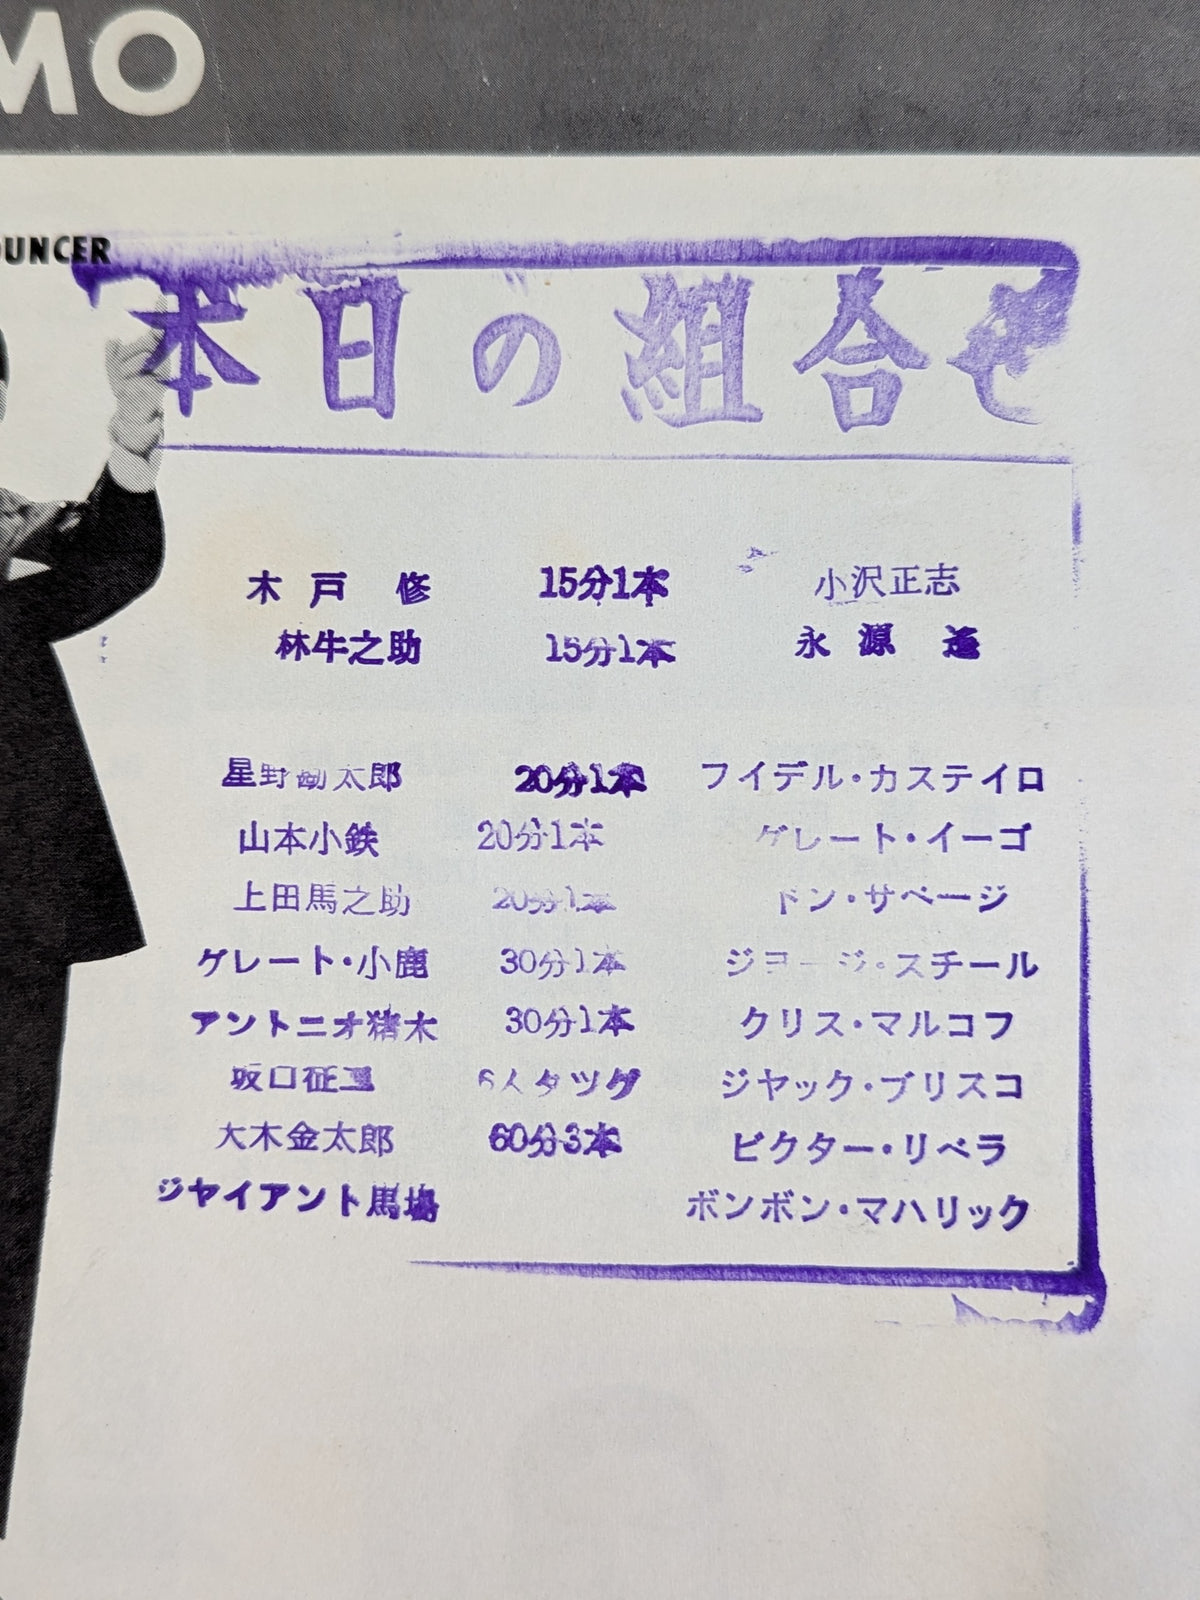 MO
OUNCER
本日の組合せ
木戸修 15分1本 小沢正志
林牛之助 15分1本 永源遥
星野勘太郎 20分1本 フイデル・カステイロ
山本小鉄 20分1本 グレート・イーゴ
上田馬之助 20分1本 ドン・サベージ
グレート・小鹿 30分1本 ジヨージ・スチール
アントニオ猪木 30分1本 クリス・マルコフ
坂口征二 6人タツグ ジヤック・ブリスコ
大木金太郎 60分3本 ビクター・リベラ
ジヤイアント馬場 ボンボン・マハリック